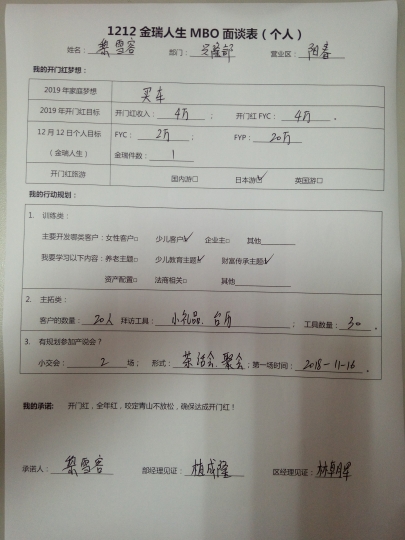 1212 金瑞人生 MBO 面谈表（个人）
姓名：黎雪容 部门：兴隆部 营业区：阳春
我的开门红梦想：
2019 年家庭梦想 买车
2019 年开门红目标 开门红收入：4万； 开门红 FYC：4万。
12 月 12 日个人目标 FYC：2万 FYP：20万
（金瑞人生） 金瑞件数：1
开门红旅游 国内游□ 日本游☑ 英国游□
我的行动规划：
1. 训练类：
主要开发哪类客户：女性客户□ 少儿客户☑ 企业主□ 其他
我要学习以下内容：养老主题□ 少儿教育主题☑ 财富传承主题☑
资产配置□ 法商相关□ 其他
2. 主拓类：
客户的数量：20人 拜访工具：小礼品、台历； 工具数量：30。
3. 有规划参加产说会？
小交会：2 场； 形式：茶话会、聚会；第一场时间：2018-11-16。
我的承诺： 开门红，全年红，咬定青山不放松，确保达成开门红！
承诺人：黎雪容 部经理见证：植成隆 区经理见证：林朝晖